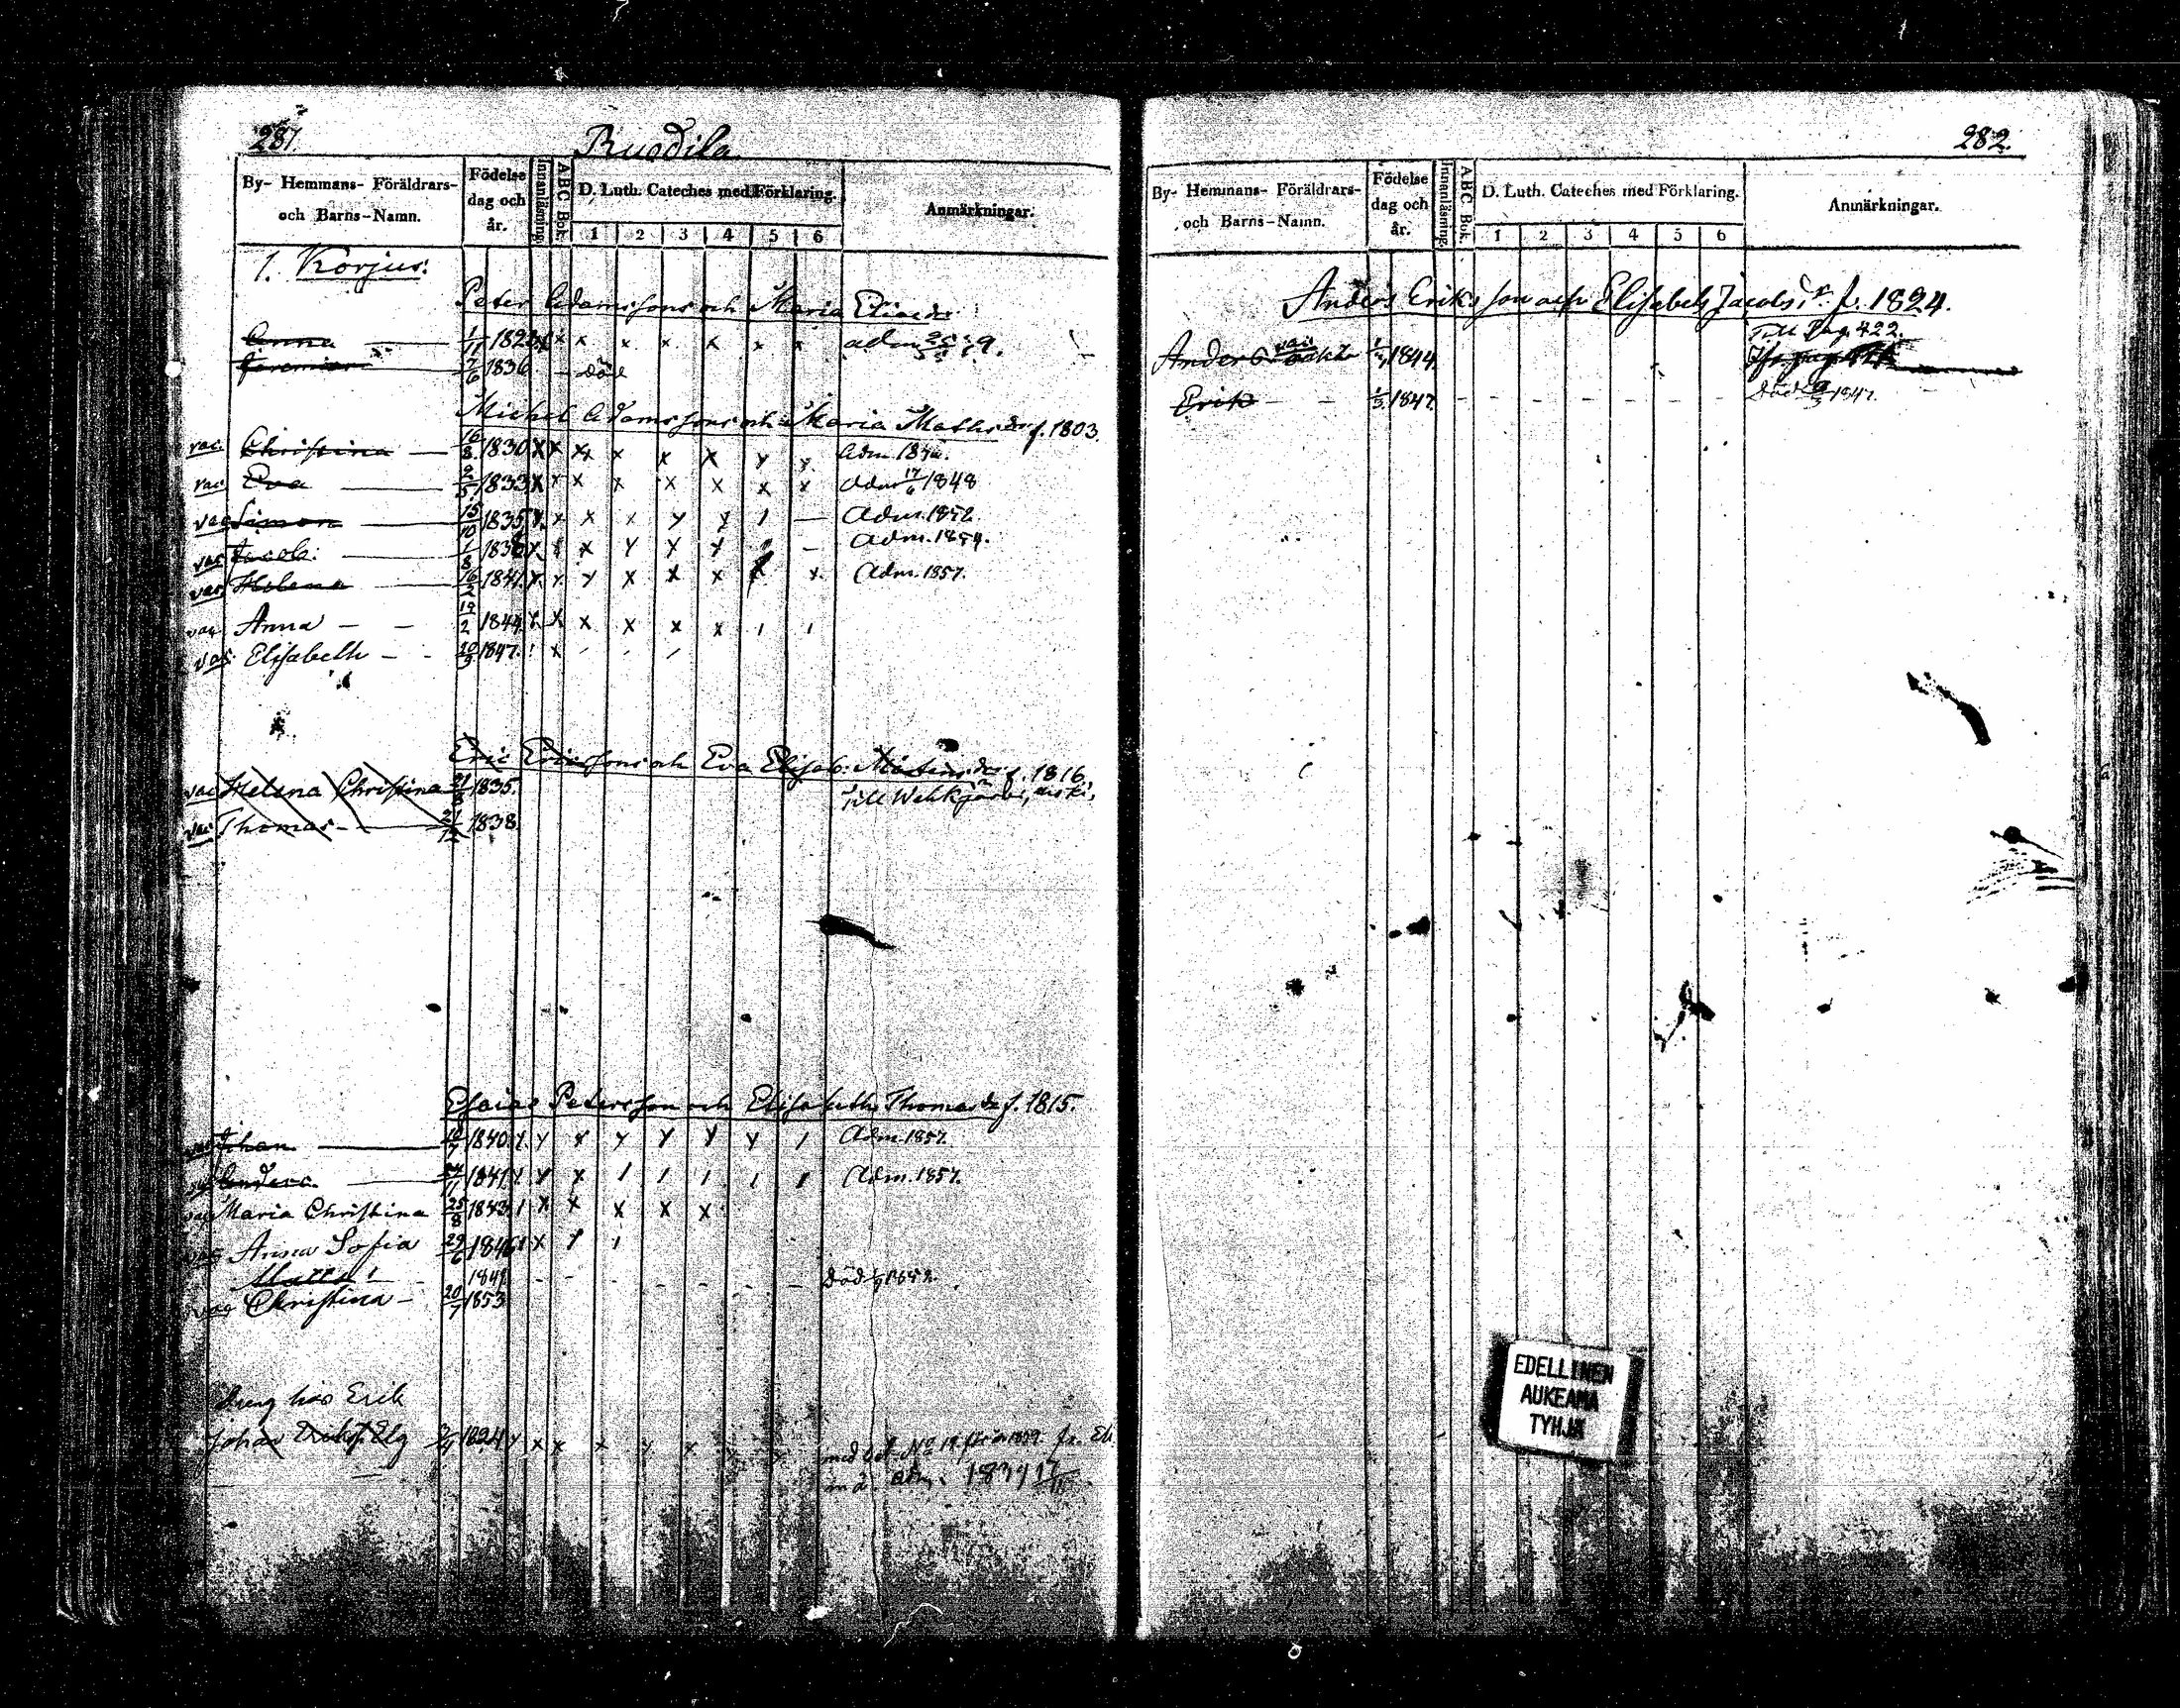 281.
Ruodila
By- Hemmans- Föräldrars- och Barns-Namn.
Födelse dag och år.
Innanläsning.
A B C Bok.
D. Luth. Cateches med Förklaring.
1 2 3 4 5 6
Anmärkningar.
1. Korjus:
Peter Adamssons och Maria Eliaedr.
Anna 1/11 182 x x x x x x x adm
Jeremias 7/6 1836 — död
Michel Adamssons och Maria Mathsdr f. 1803.
vac. Christina — 16/8 1830 x x x x x x y y Adm.
vac. Eva — 2/5 1833 x x x x x x x x Adm 17/6 1848
vac Simon — 15/10 1835 x x x x y y 1 — Adm. 1852
vac Jacob: — 1/8 183 x x x y y y — Adm. 1854.
vac Helena — 16/2 1841. x x y x x x x x Adm. 1857.
vac Anna — — 19/2 1844. x x x x x x 1 1
vac. Elisabeth — - 20/3 1847. ! x
Eric Ericssons och Eva Elisab: Mårtensdr f. 1816.
vac Helena Christina 21/8 1835. Till
vac. Thomas - - 21/12 1838
Esaias Petersson och Elisabeth Thomasdr f. 1815.
vac Johan — 10/7 1840. y y x y y y y 1 Adm. 1857.
Anders. — 24/11 1841. y y x 1 1 1 1 1 Adm. 1857.
vac Maria Christina 25/8 1843. 1 x x x x x
vac Anna Sofia 29/6 1846 1 x y 1
Matts 1849 Död
vac Christina — 20/7 1853
dreng hos Erik
Johan Eriksf. Elg 1824 y x x x y x y y med bet. No 19.
adm. 17/11
282.
By- Hemmans- Föräldrars- och Barns-Namn.
Födelse dag och år.
Innanläsning.
A B C Bok.
D. Luth. Cateches med Förklaring.
1 2 3 4 5 6
Anmärkningar.
Anders Eriksson och Elisabeth Jacobsdr. f. 1824.
Till Pag. 422.
Anders vac. 1844.
Erik — — 1/3 1847. - - - - - - - Död 9/3 1847.
EDELLINEN
AUKEAMA
TYHJÄ